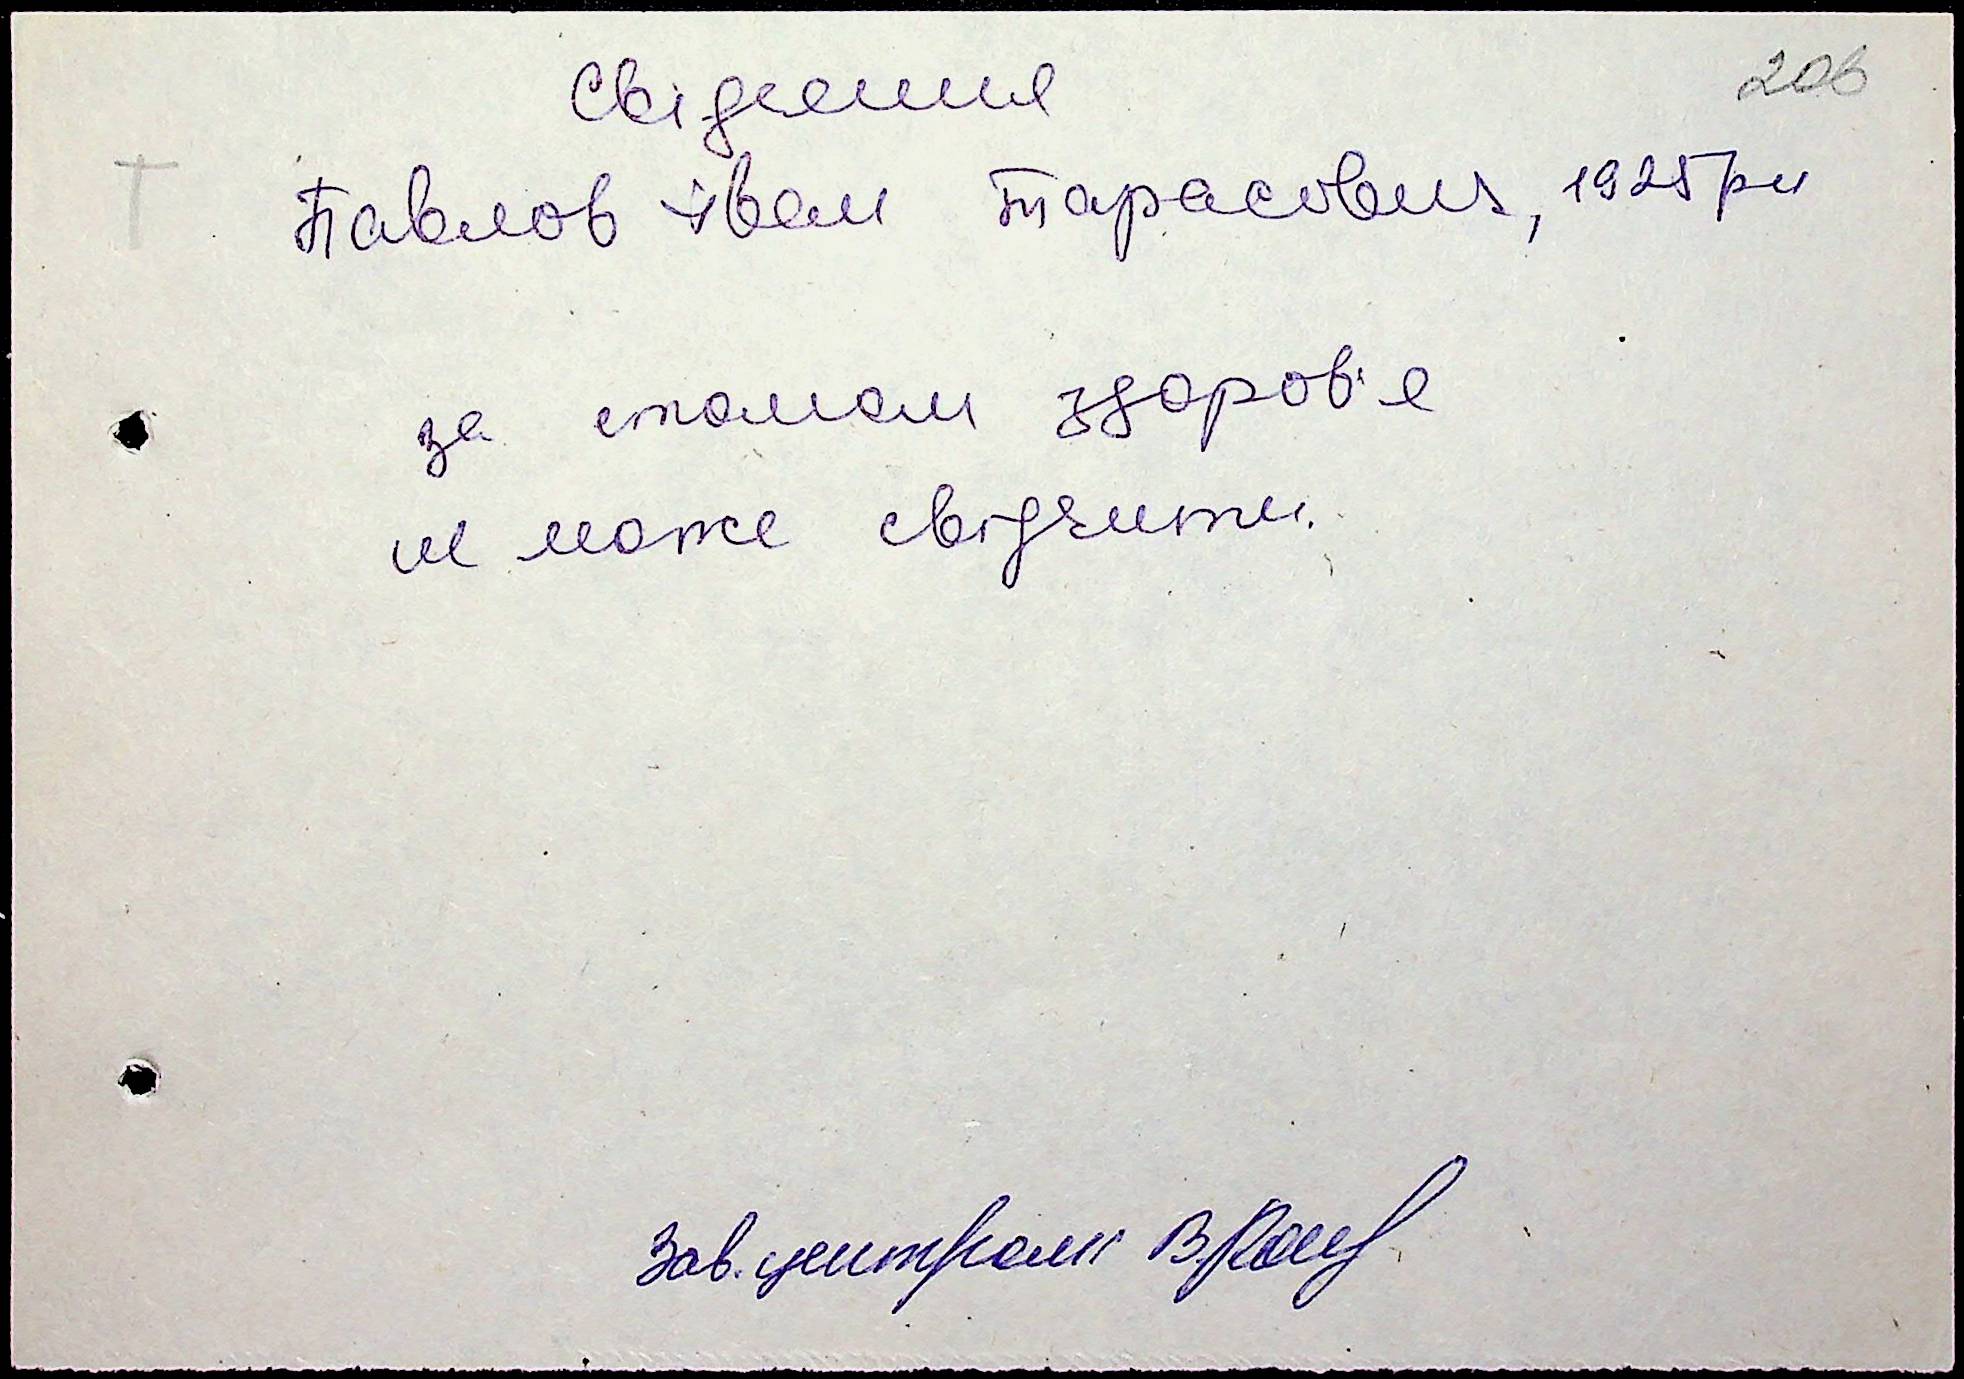 206
Свідчення
Т
Павлов Іван Тарасович, 1925 р н
за станом здоров'я
не може свідчити.
Зав. центром